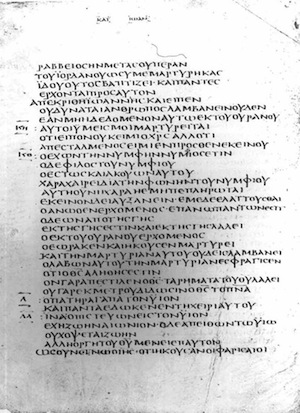 ΚΑΤ ΙΩΑΝ
ΡΑΒΒΕΙΟϹΗΝΜΕΤΑϹΟΥΠΕΡΑΝ
ΤΟΥΙΟΡΔΑΝΟΥΩϹΥΜΕΜΑΡΤΥΡΗΚΑϹ
ΙΔΟΥΟΥΤΟϹΒΑΠΤΙΖΕΙΚΑΙΠΑΝΤΕϹ
ΕΡΧΟΝΤΑΙΠΡΟϹΑΥΤΟΝ
ΑΠΕΚΡΙΘΗΙΩΑΝΝΗϹΚΑΙΕΙΠΕΝ
ΟΥΔΥΝΑΤΑΙΑΝΘΡΩΠΟϹΛΑΜΒΑΝΕΙΝΟΥΔΕΝ
ΕΑΝΜΗΗΔΕΔΟΜΕΝΟΝΑΥΤΩΕΚΤΟΥΟΥΡΑΝΟΥ
ΑΥΤΟΙΥΜΕΙϹΜΟΙΜΑΡΤΥΡΕΙΤΑΙ
ΟΤΙΕΙΠΟΝΟΥΚΕΙΜΙΟΧΡϹΑΛΛΟΤΙ
ΑΠΕϹΤΑΛΜΕΝΟϹΕΙΜΙΕΝΠΡΟϹΘΕΝΕΚΕΙΝΟΥ
ΟΕΧΩΝΤΗΝΝΥΜΦΗΝΝΥΜΦΙΟϹΕϹΤΙΝ
ΟΔΕΦΙΛΟϹΤΟΥΝΥΜΦΙΟΥ
ΟΕϹΤΩϹΚΑΙΑΚΟΥΩΝΑΥΤΟΥ
ΧΑΡΑΧΑΙΡΕΙΔΙΑΤΗΝΦΩΝΗΝΤΟΥΝΥΜΦΙΟΥ
ΑΥΤΗΟΥΝΗΧΑΡΑΗΕΜΗΠΕΠΛΗΡΩΤΑΙ
ΕΚΕΙΝΟΝΔΕΙΑΥΞΑΝΕΙΝΕΜΕΔΕΕΛΑΤΤΟΥϹΘΑΙ
ΟΑΝΩΘΕΝΕΡΧΟΜΕΝΟϹΕΠΑΝΩΠΑΝΤΩΝΕϹΤΙ
ΟΔΕΩΝΑΠΟΤΗϹΓΗϹ
ΕΚΤΗϹΓΗϹΕϹΤΙΝΚΑΙΕΚΤΗϹΓΗϹΛΑΛΕΙ
ΟΕΚΤΟΥΟΥΡΑΝΟΥΕΡΧΟΜΕΝΟϹ
ΟΕΩΡΑΚΕΝΚΑΙΗΚΟΥϹΕΝΜΑΡΤΥΡΕΙ
ΚΑΙΤΗΝΜΑΡΤΥΡΙΑΝΑΥΤΟΥΟΥΔΕΙϹΛΑΜΒΑΝΕΙ
ΟΛΑΒΩΝΑΥΤΟΥΤΗΝΜΑΡΤΥΡΙΑΝΕϹΦΡΑΓΙϹΕΝ
ΟΤΙΟΘϹΑΛΗΘΗϹΕϹΤΙΝ
ΟΝΓΑΡΑΠΕϹΤΙΛΕΝΟΘϹΤΑΡΗΜΑΤΑΤΟΥΘΥΛΑΛΕΙ
ΟΥΓΑΡΕΚΜΕΤΡΟΥΔΙΔΩϹΙΝΟΘϹΤΟΠΝΑ
Λ : ΟΠΑΤΗΡΑΓΑΠΑΤΟΝΥΙΟΝ
ΚΑΙΠΑΝΤΑΕΔΩΚΕΝΕΝΤΗΧΕΙΡΙΑΥΤΟΥ
ΛΑ : ΙΝΑΟΠΙϹΤΕΥΩΝΕΙϹΤΟΝΥΙΟΝ
ΕΧΗΖΩΗΝΑΙΩΝΙΟΝΟΔΕΑΠΕΙΘΩΝΤΩΥΙΩ
ΟΥΚΟΨΕΤΑΙΖΩΗΝ
ΑΛΛΗΟΡΓΗΤΟΥΘΥΜΕΝΕΙΕΠΑΥΤΟΝ
ΩϹΟΥΝΕΓΝΩΟΙΗϹΟΤΙΗΚΟΥϹΑΝΟΙΦΑΡΙϹΑΙΟΙ